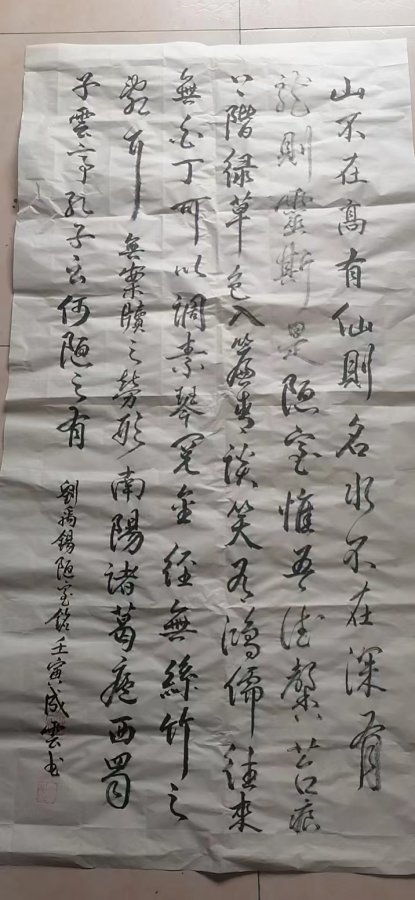 山不在高有仙則名水不在深有
龍則靈斯是陋室惟吾德馨苔痕
上階緑草色入簾青談笑有鴻儒往來
無白丁可以調素琴閱金經無絲竹之
亂耳無案牘之勞形南陽諸葛廬西蜀
子雲亭孔子云何陋之有
劉禹錫陋室銘壬寅成雲书